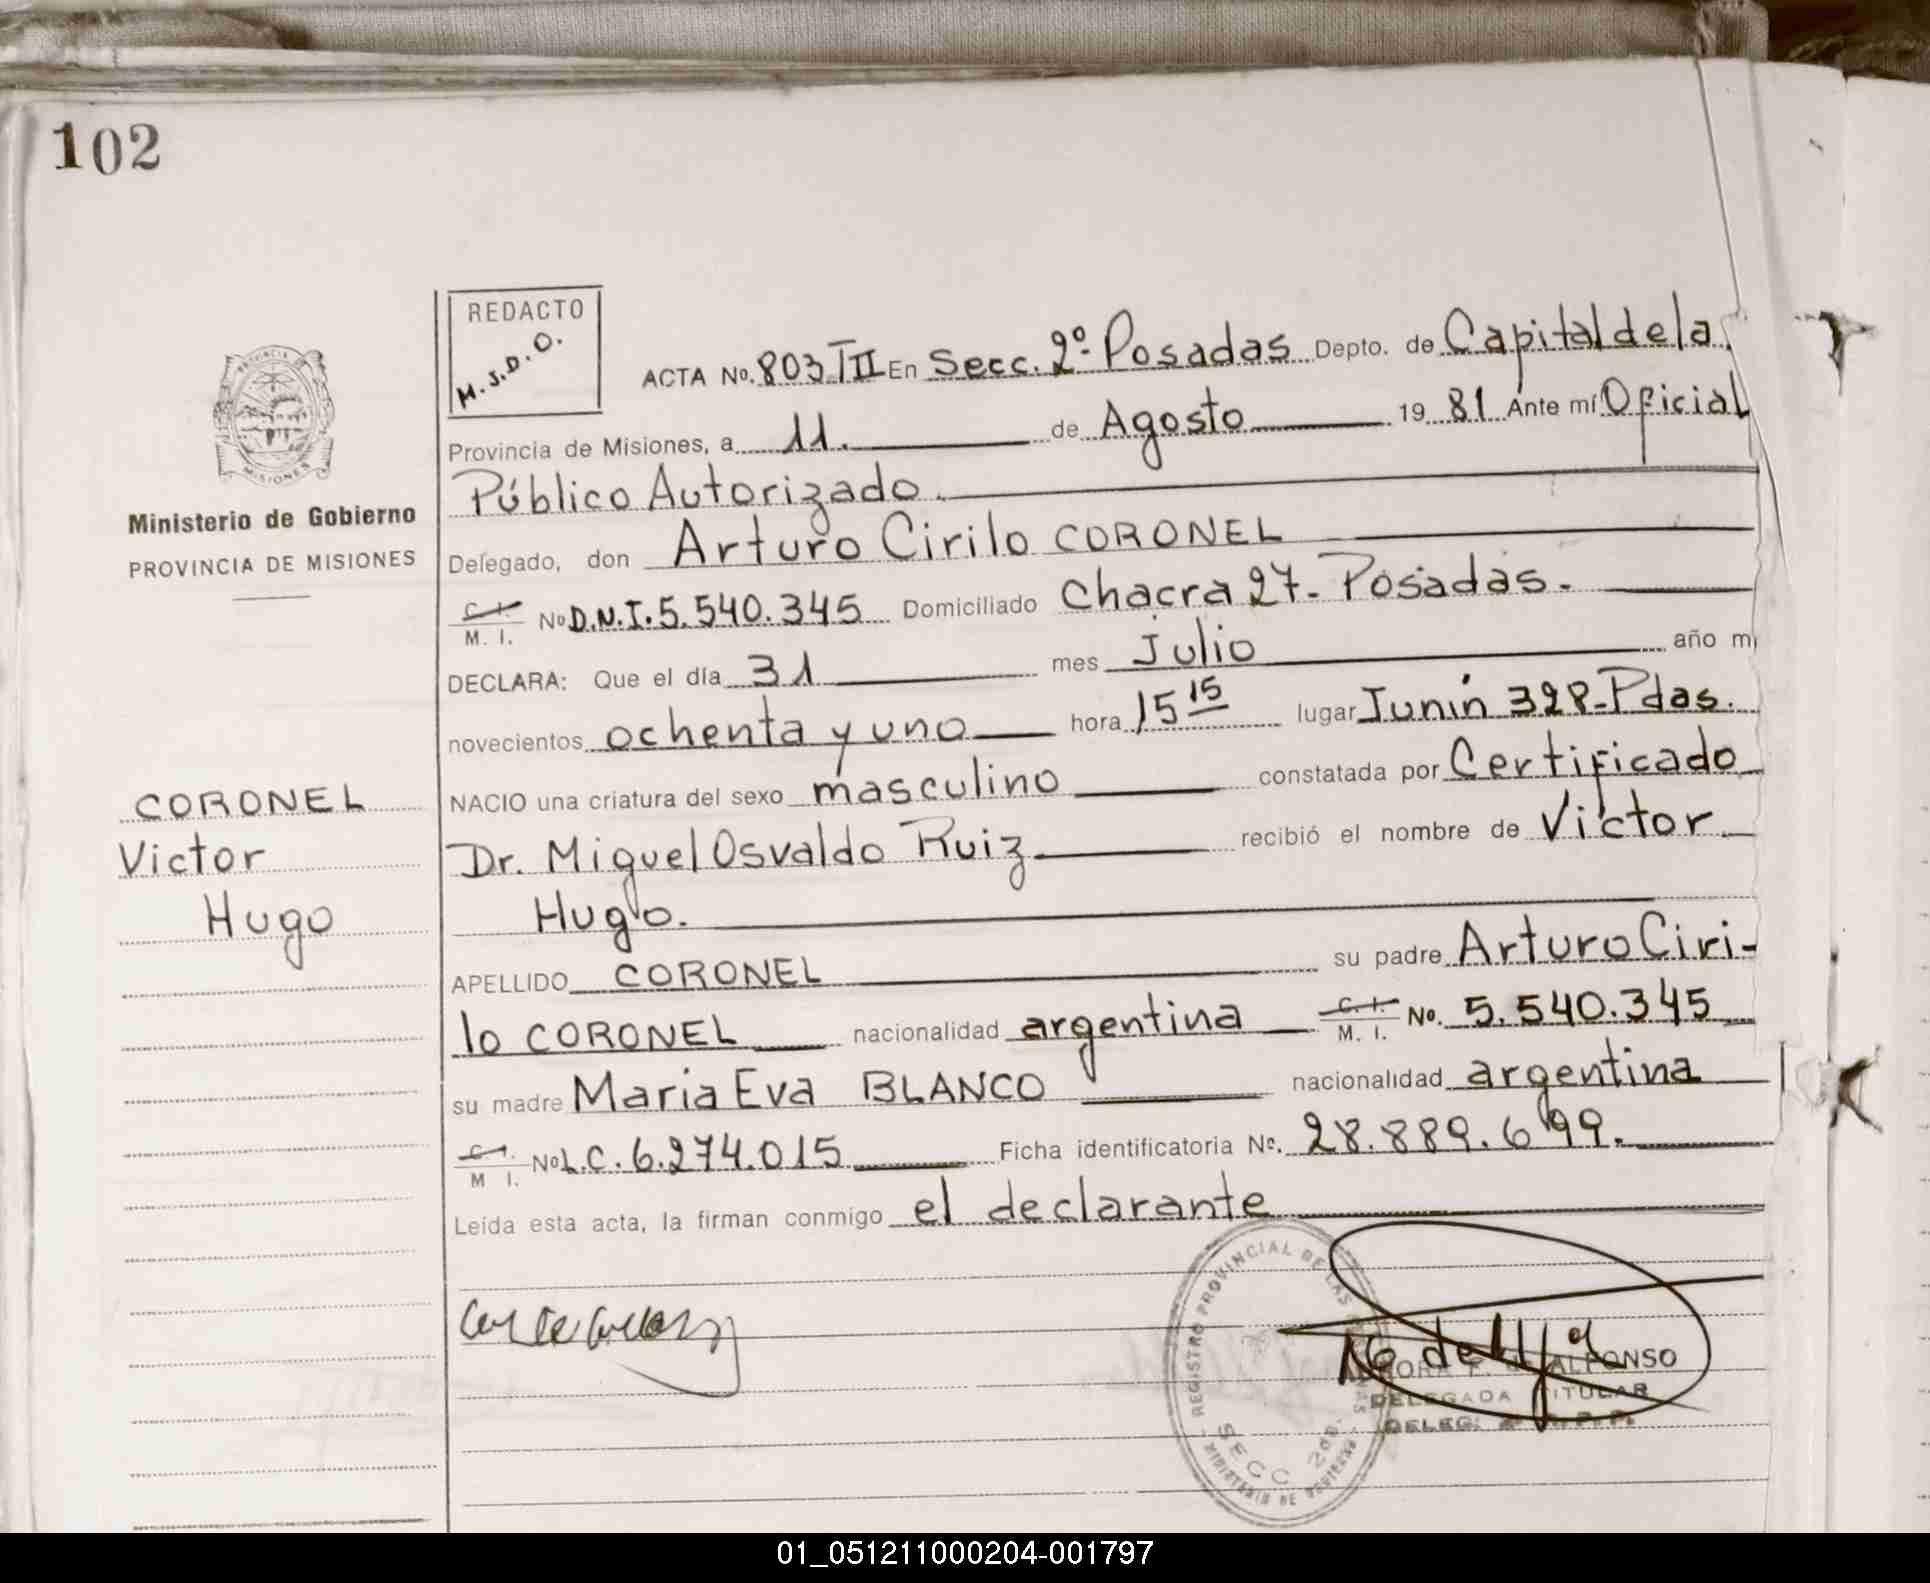 102
REDACTO
M.S.D.O.
ACTA No. 803 TII En Secc. 2º- Posadas Depto. de Capital de la
Provincia de Misiones, a 11. de Agosto 19 81 Ante mí Oficial
Público Autorizado.
Delegado, don Arturo Cirilo CORONEL
C. I. M. I. No D.N.I. 5.540.345 Domiciliado Chacra 27- Posadas.
DECLARA: Que el día 31 mes Julio año m
novecientos ochenta y uno hora 15 15 lugar Junín 328-Pdas.
NACIO una criatura del sexo masculino constatada por Certificado
Dr. Miguel Osvaldo Ruiz recibió el nombre de Victor
Hugo.
APELLIDO CORONEL su padre Arturo Ciri-
lo CORONEL nacionalidad argentina C. I. M. I. No. 5.540.345
su madre Maria Eva BLANCO nacionalidad argentina
C. I. M I. No L.C. 6.274.015 Ficha identificatoria No. 28.889.699.
Leída esta acta, la firman conmigo el declarante
PROVINCIA DE MISIONES
Ministerio de Gobierno
PROVINCIA DE MISIONES
CORONEL
Victor
Hugo
REGISTRO PROVINCIAL DE LAS
SECC 2da.
MINISTERIO DE GOBIERNO
ALFONSO
DELEGADA TITULAR
DELEG.
01_051211000204-001797